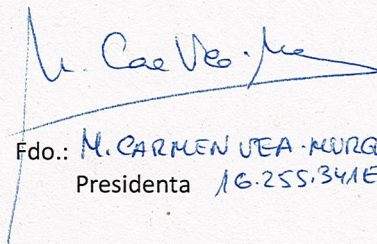 Fdo.: M. CARMEN VEA-MURG
Presidenta 16.255.341E